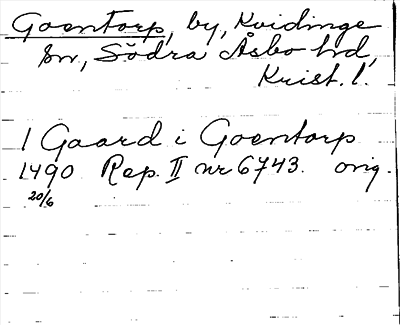 Goentorp, by, Kvidinge
sn, Södra Åsbo hd,
Krist. l.
1 Gaard i Goentorp
1490 Rep. II nr 6743. orig.
20/6